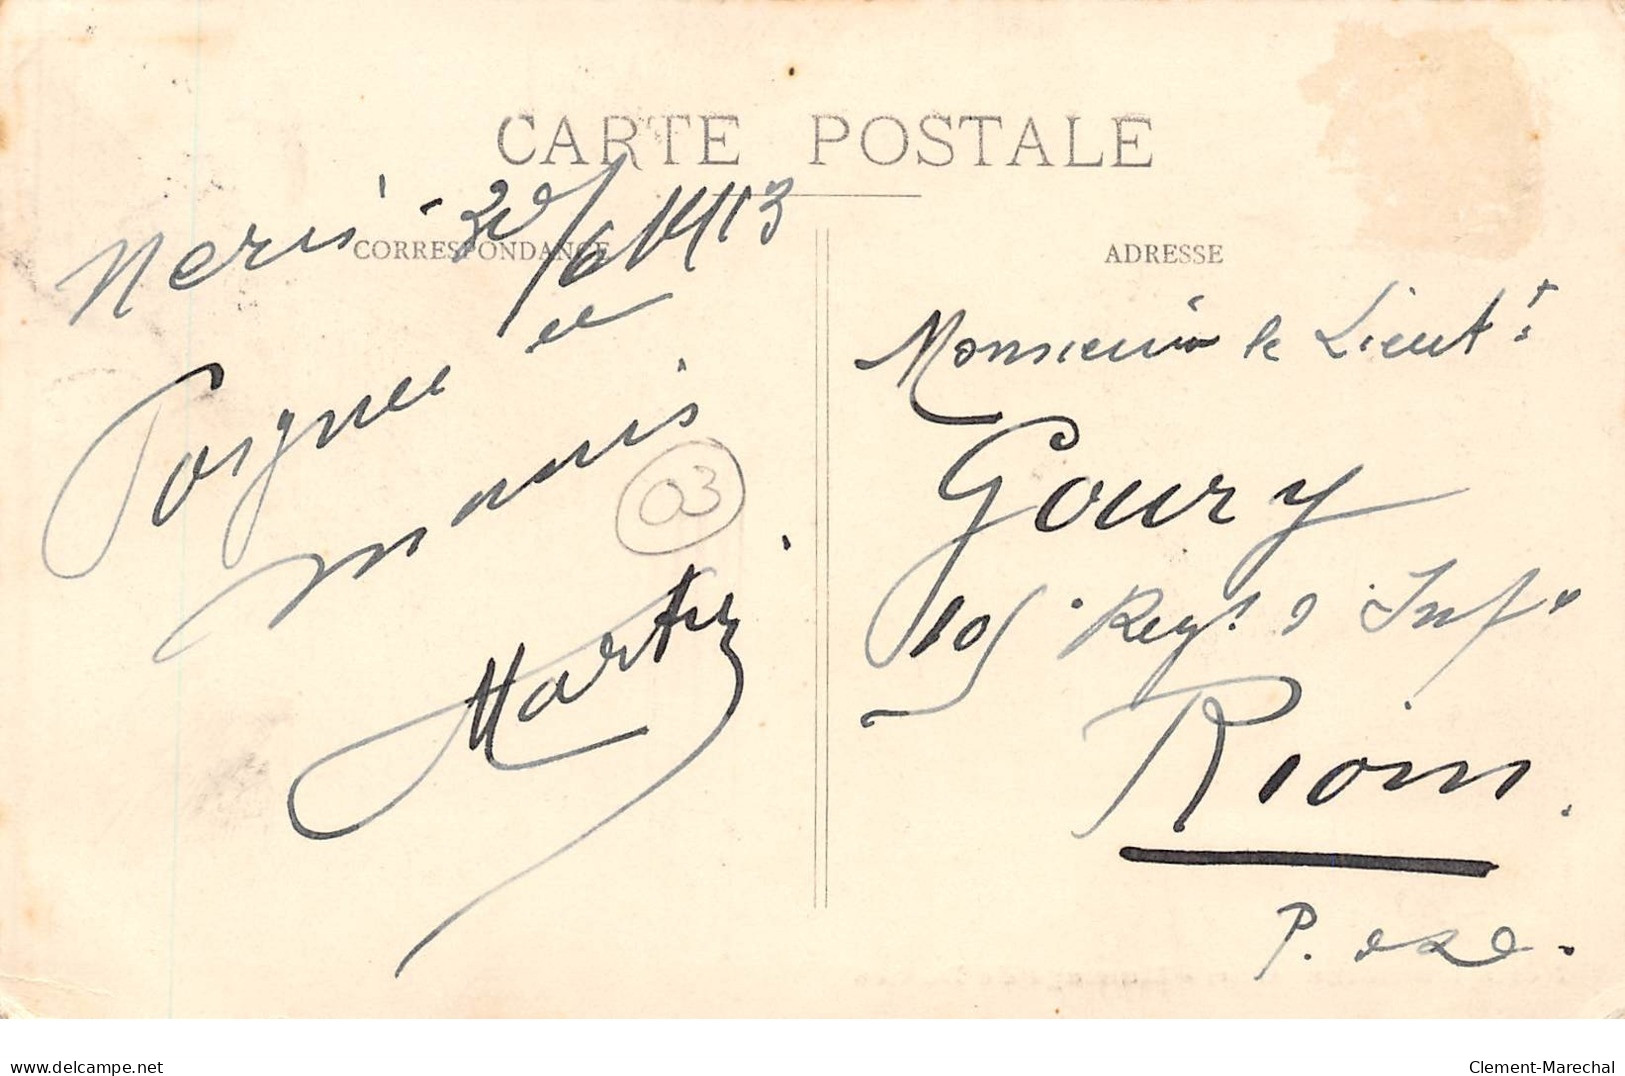 CARTE POSTALE
CORRESPONDANCE
ADRESSE
Neris - 30/6/1913
Poignée de
mains
Martin
03
Monsieur le Lieut.t
Goury
105e Regt. d'Infie
Riom
P. de D.
delcampe.net
Clement-Marechal